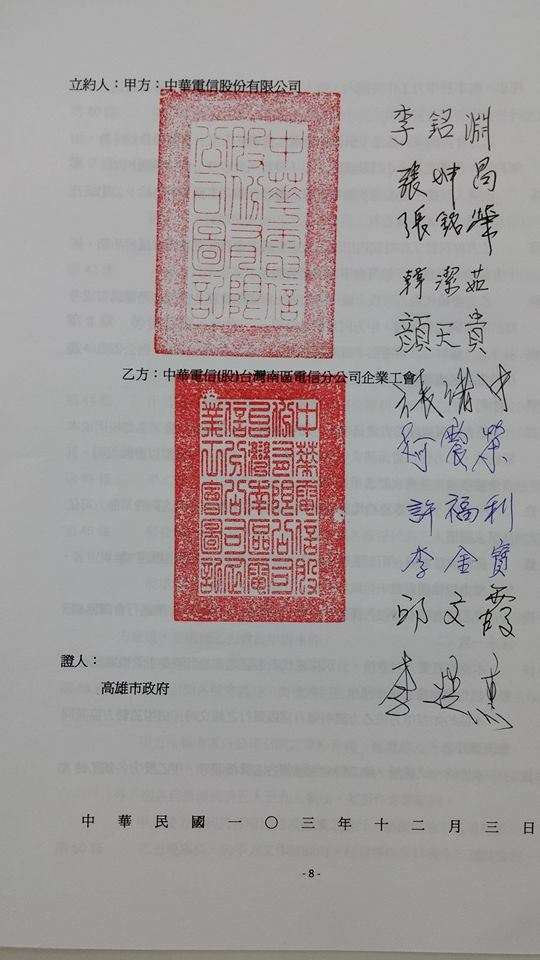 立約人：甲方：中華電信股份有限公司
中華電信
股份有限
公司圖記
李銘淵
張坤昌
張銘榮
韓潔茹
顏天貴
乙方：中華電信(股)台灣南區電信分公司企業工會
中華電信股
份有限公司
台灣南區電
信分公司企
業工會圖記
張緒中
柯震榮
許福利
李金寶
邱文霞
證人：
高雄市政府
中華民國一〇三年十二月三日
- 8 -